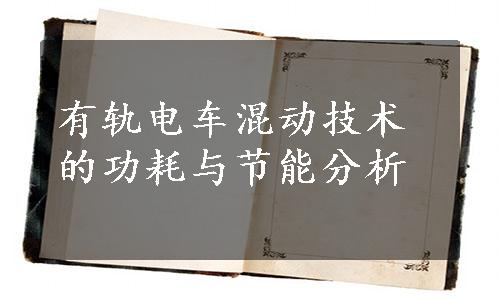 有轨电车混动技术
的功耗与节能分析